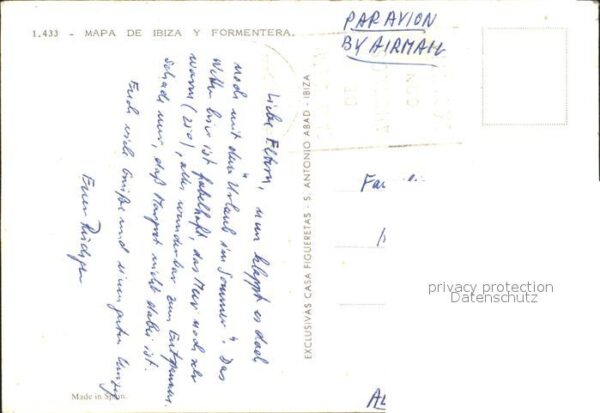 1.433 - MAPA DE IBIZA Y FORMENTERA.
PAR AVION
BY AIRMAIL
Liebe Eltern, nun klappt es doch
noch mit dem "Urlaub im Sommer". Das
Wetter hier ist fabelhaft, das Meer noch sehr
warm (23°), alles wunderbar zum Entspannen.
Schade nur, daß Margret nicht dabei ist.
Euch viele Grüße und einen guten
Euer
EXCLUSIVAS CASA FIGUERETAS - S. ANTONIO ABAD - IBIZA
Fa
privacy protection
Datenschutz
Made in Spain.